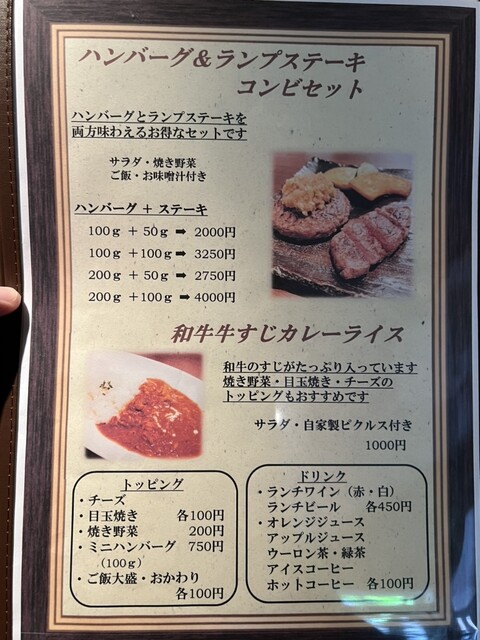 ハンバーグ＆ランプステーキ
コンビセット
ハンバーグとランプステーキを
両方味わえるお得なセットです
サラダ・焼き野菜
ご飯・お味噌汁付き
ハンバーグ ＋ ステーキ
100ｇ ＋ 50ｇ ➡ 2000円
100ｇ ＋100ｇ ➡ 3250円
200ｇ ＋ 50ｇ ➡ 2750円
200ｇ ＋100ｇ ➡ 4000円
和牛牛すじカレーライス
和牛のすじがたっぷり入っています
焼き野菜・目玉焼き・チーズの
トッピングもおすすめです
サラダ・自家製ピクルス付き
1000円
トッピング
・チーズ
・目玉焼き 各100円
・焼き野菜 200円
・ミニハンバーグ 750円
（100ｇ）
・ご飯大盛・おかわり
各100円
ドリンク
・ランチワイン（赤・白）
ランチビール 各450円
・オレンジジュース
アップルジュース
ウーロン茶・緑茶
アイスコーヒー
ホットコーヒー 各100円